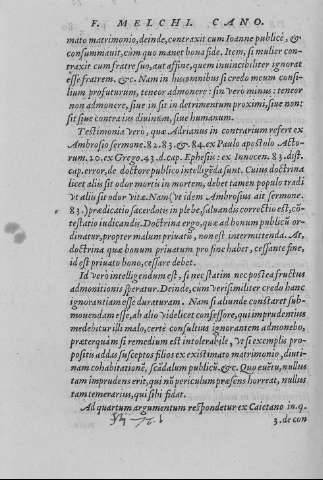 F. MELCHI. CANO.
mato matrimonio, deinde, contraxit cum Ioanne publicè, &
consummauit, cum quo manet bona fide. Item, si mulier con-
traxit cum fratre suo, aut affine, quem inuincibiliter ignorat
esse fratrem. &c. Nam in his omnibus si credo meum consi-
lium profuturum, teneor admonere: sin vero minus: teneor
non admonere, siue in sit in detrimentum proximi, siue non:
sit siue contra ius diuinũ, siue humanum.
Testimonia verò, quæ Adrianus in contrarium refert ex
Ambrosio sermone. 82. 83. & 84. ex Paulo apostolo Acto-
rum. 20. ex Grego. 43. d. cap. Ephesiis: ex Innocen. 83. dist.
cap. error, de doctore publico intelligẽda sunt. Cuius doctrina
licet aliis sit odor mortis in mortem, debet tamen populo tradi
vt aliis sit odor vitæ. Nam, vt idem Ambrosius ait sermone.
83. prædicatio sacerdotis in plebe, saluandis correctio est, cõ-
testatio iudicandis. Doctrina ergo, quæ ad bonum publicũ or-
dinatur, propter malum priuatũ, non est intermittenda. At,
doctrina quæ bonum priuatum pro fine habet, cessante fine,
id est priuato bono, cessare debet.
Id verò intelligendum est, si nec statim nec postea fructus
admonitionis speratur. Deinde, cum verisimiliter credo hanc
ignorantiam esse duraturam. Nam si aliunde constaret sub-
mouendam esse, ab alio videlicet confessore, qui imprudentius
medebitur illi malo, certè consultius ignorantem admonebo,
præterquàm si remedium est intolerabile, vt si exemplis pro-
positis addas susceptos filios ex existimato matrimonio, diuti-
nam cohabitationẽ, scãdalum publicũ. &c. Quo euẽtu, nullus
tam imprudens erit, qui nõ periculum præsens horreat, nullus
tam temerarius, qui sibi fidat.
Ad quartum argumentum respondetur ex Caietano in. q.
3. de con